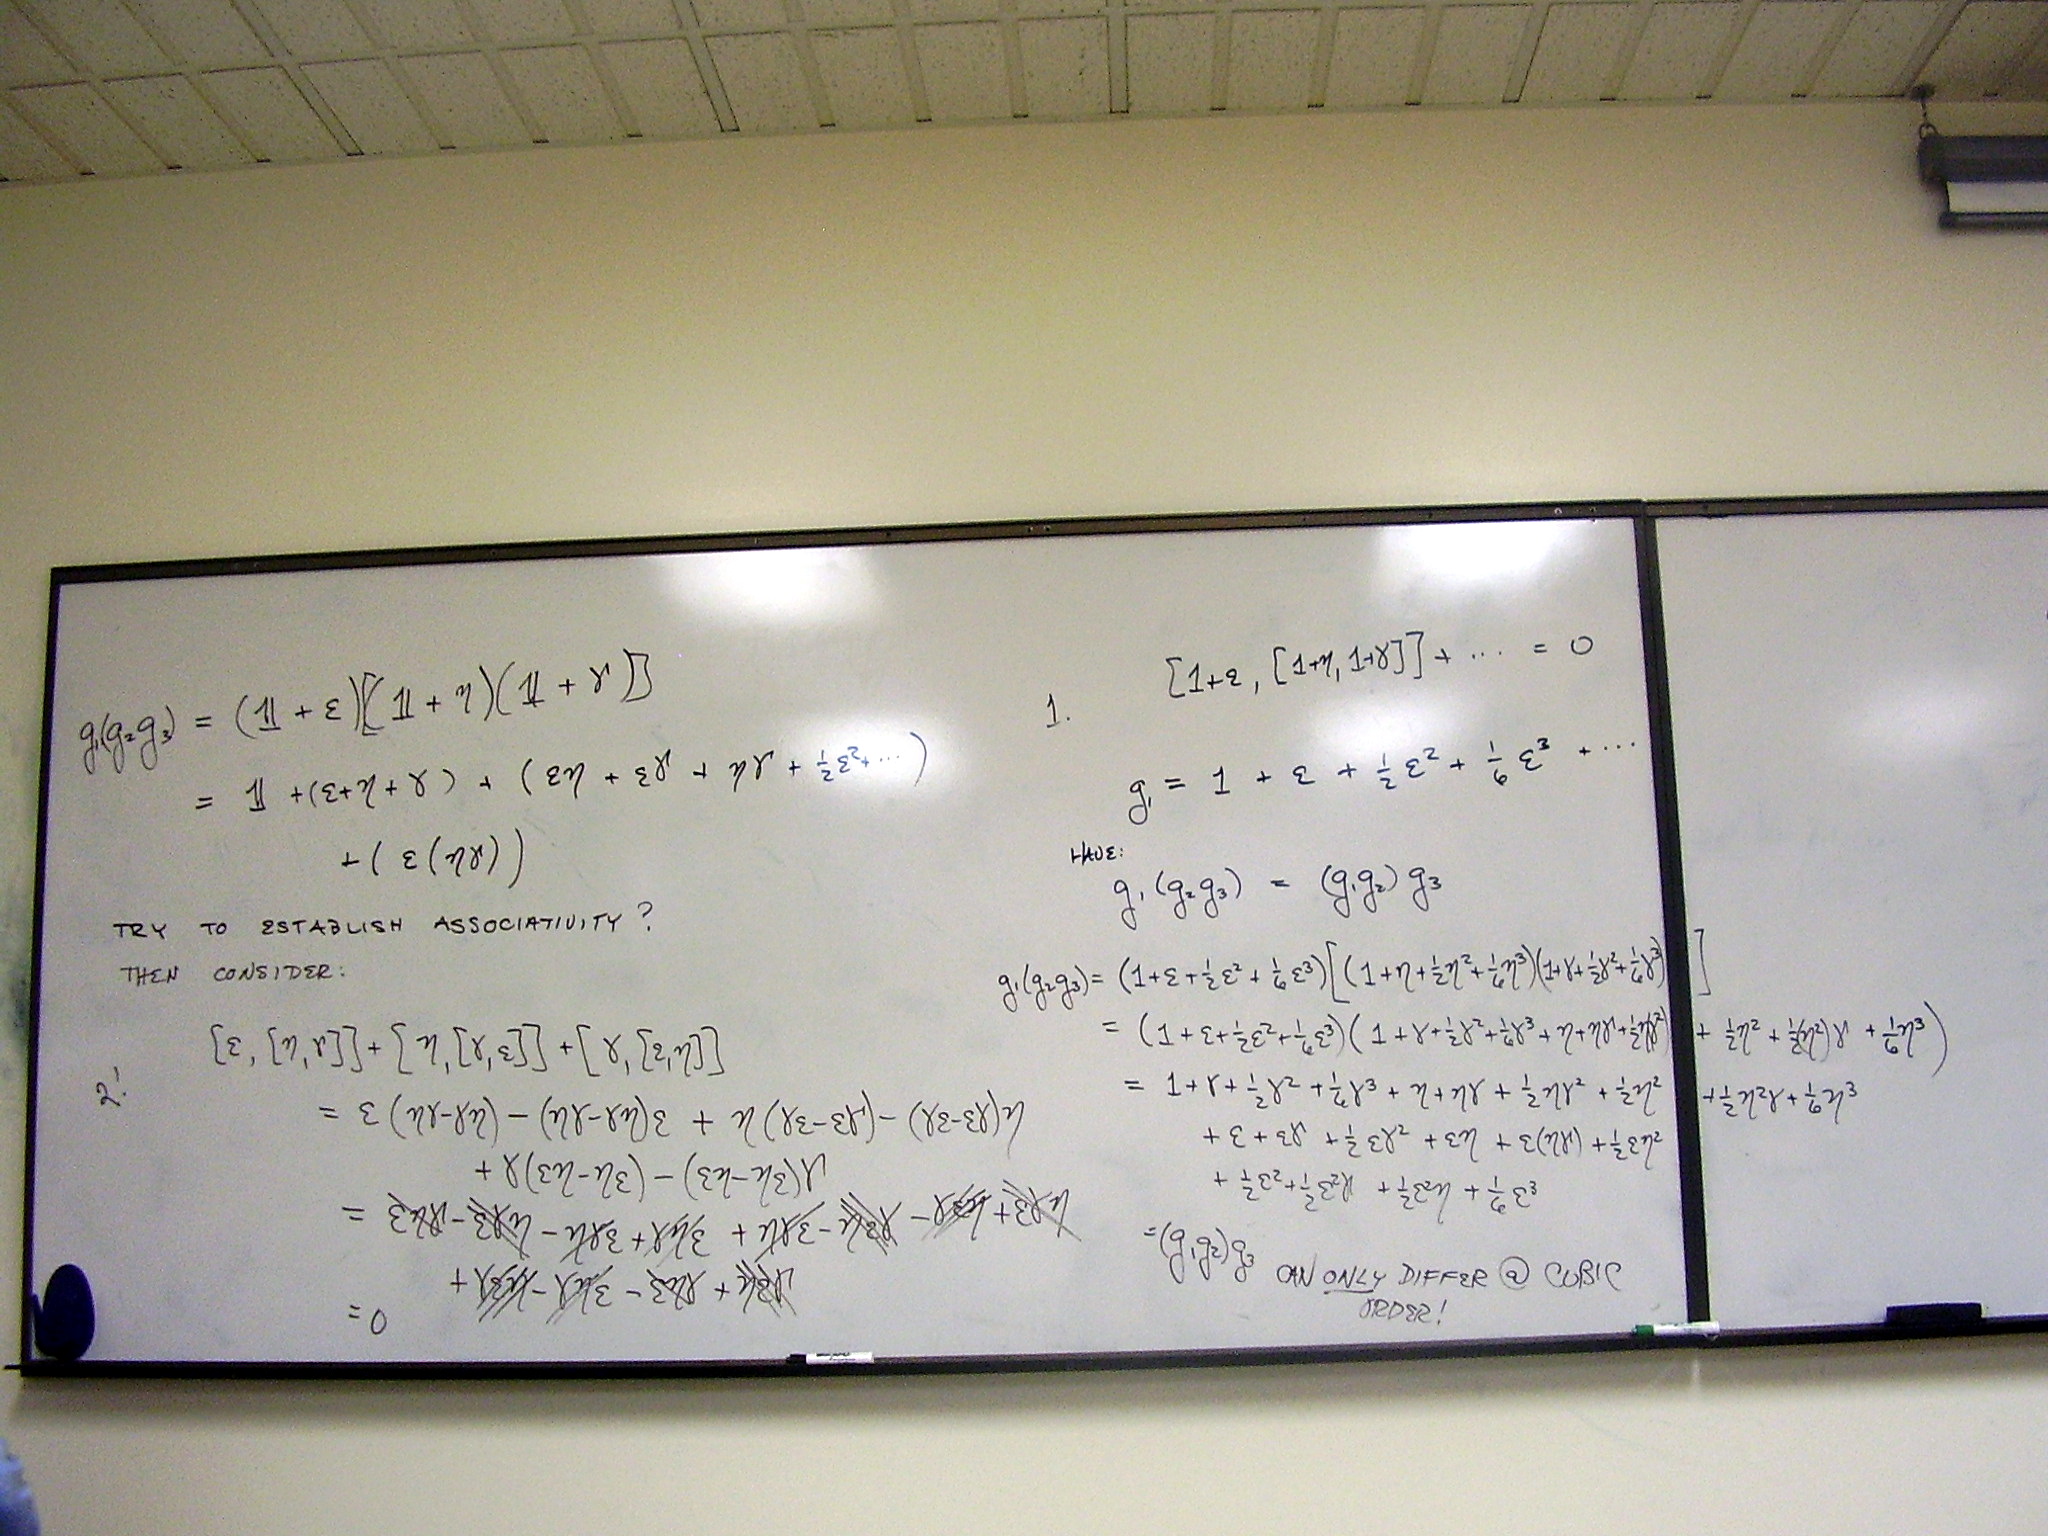 g₁(g₂g₃) = (𝟙 + ε)[(𝟙 + η)(𝟙 + γ)]
= 𝟙 + (ε+η+γ) + (εη + εγ + ηγ + ½ε²+ ⋯)
+ ( ε(ηγ))
TRY TO ESTABLISH ASSOCIATIVITY?
THEN CONSIDER:
2! [ε, [η,γ]] + [η,[γ,ε]] + [γ,[ε,η]]
= ε(ηγ-γη) - (ηγ-γη)ε + η(γε-εγ) - (γε-εγ)η
+ γ(εη-ηε) - (εη-ηε)γ
= 0
1. [1+ε, [1+η, 1+γ]] + ⋯ = 0
g₁ = 1 + ε + ½ε² + ⅙ε³ + ⋯
HAVE:
g₁(g₂g₃) = (g₁g₂)g₃
g₁(g₂g₃) = (1+ε+½ε²+⅙ε³)[(1+η+½η²+⅙η³)(1+γ+½γ²+⅙γ³)]
= (1+ε+½ε²+⅙ε³)(1+γ+½γ²+⅙γ³+η+ηγ+½ηγ² + ½η² + ½(η²)γ + ⅙η³)
= 1+γ+½γ²+⅙γ³+η+ηγ+½ηγ²+½η² +½η²γ+⅙η³
+ ε + εγ + ½εγ² + εη + ε(ηγ) + ½εη²
+ ½ε²+½ε²γ + ½ε²η + ⅙ε³
=(g₁g₂)g₃ CAN ONLY DIFFER @ CUBIC
ORDER!